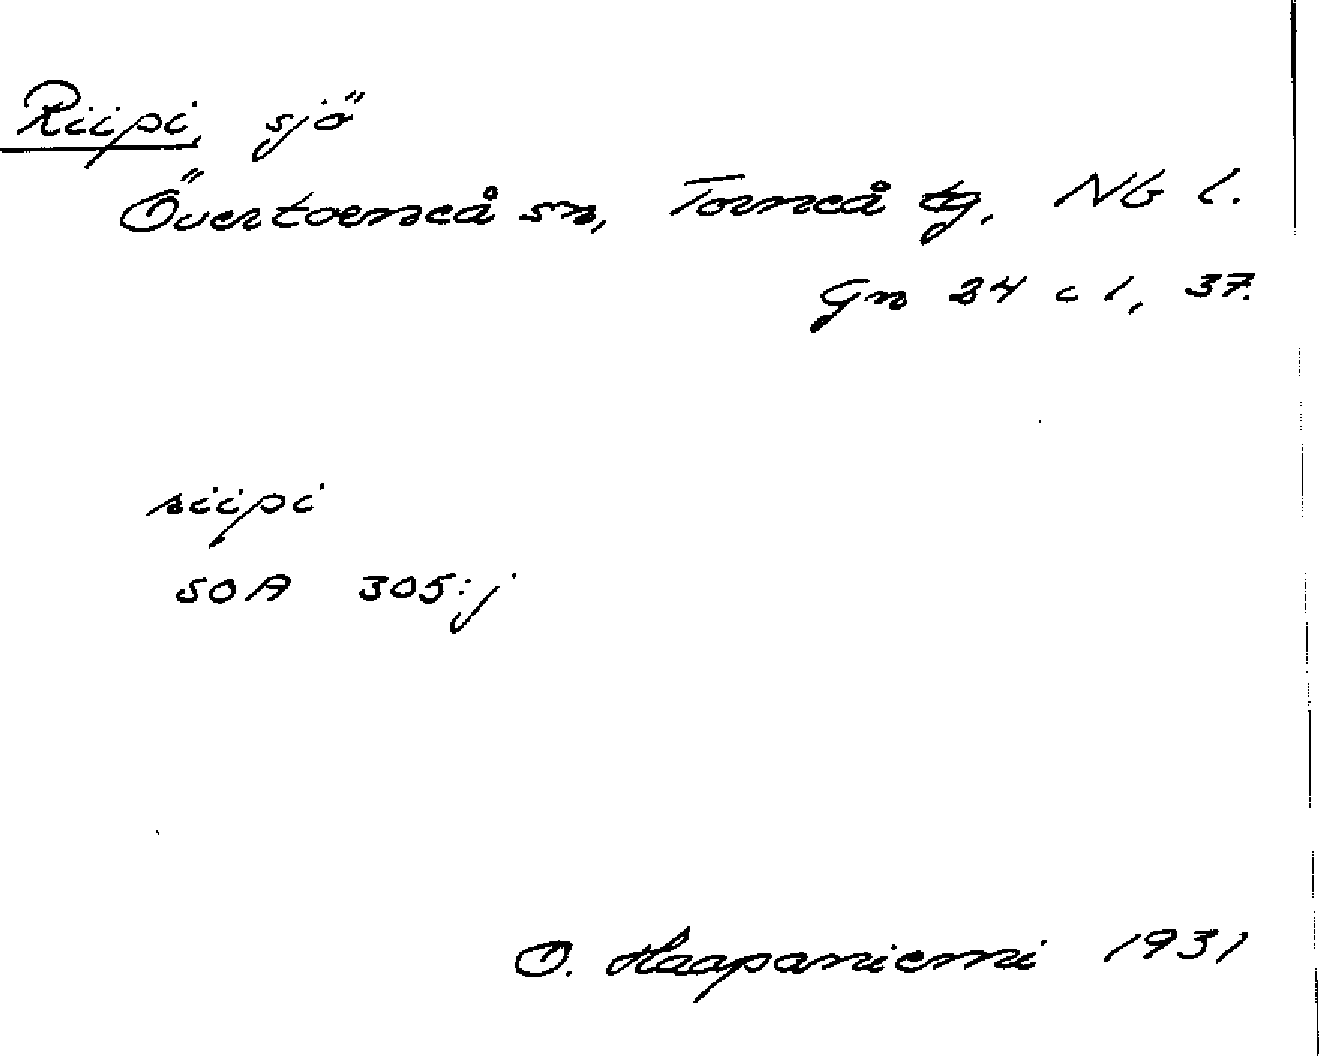 Riipi, sjö
Övertorneå sn, Torneå tg, Nb l.
Gn 24 c 1, 37.
riipi
SOA 305:j
O. Haapaniemi 1931